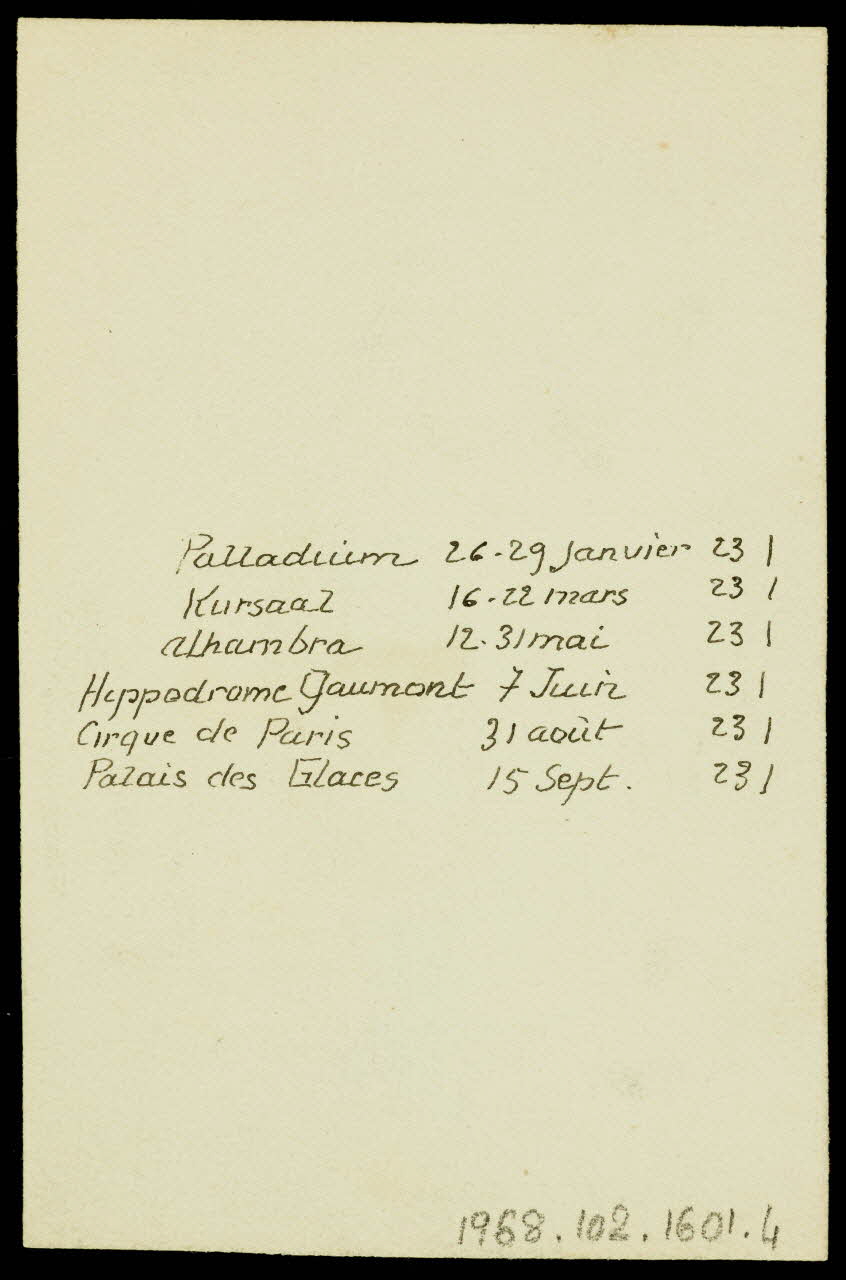 Palladium 26-29 Janvier 23 |
Kursaal 16-22 mars 23 |
alhambra 12-31 mai 23 |
Hippodrome Gaumont 7 Juin 23 |
Cirque de Paris 31 août 23 |
Palais des Glaces 15 Sept. 23 |
1968.102.1601.4